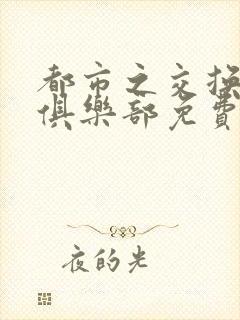 都市之交换
俱樂部免費
夜的光